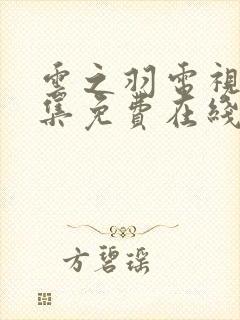 雲之羽電視
集免費在綫
方碧瑶